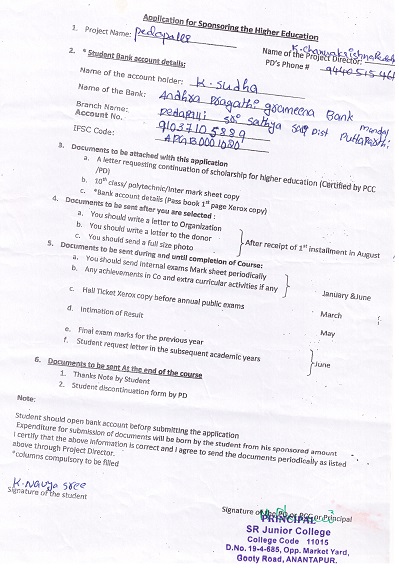 Application for Sponsoring the Higher Education
1. Project Name: pedapalli
K. Chamvakrishna
Name of the Project Director:
PD's Phone # 9440515461
2. * Student Bank account details:
Name of the account holder: K. Sudha
Name of the Bank: Andhra Pragathi grameena Bank
Branch Name: Pedapalli Sri Sathya Sai Dist Mandal
Account No. 91037105889
IFSC Code: APGB0001080
3. Documents to be attached with this application
a. A letter requesting continuation of scholarship for higher education (Certified by PCC
/PD)
b. 10th class/ polytechnic/Inter mark sheet copy
c. *Bank account details (Pass book 1st page Xerox copy)
4. Documents to be sent after you are selected :
a. You should write a letter to Organization
b. You should write a letter to the donor
c. You should send a full size photo
After receipt of 1st installment in August
5. Documents to be sent during and until completion of Course:
a. You should send internal exams Mark sheet periodically
b. Any achievements in Co and extra curricular activities if any
January &June
c. Hall Ticket Xerox copy before annual public exams
March
d. Intimation of Result
May
e. Final exam marks for the previous year
f. Student request letter in the subsequent academic years
June
6. Documents to be sent At the end of the course
1. Thanks Note by Student
2. Student discontinuation form by PD
Note:
Student should open bank account before submitting the application
Expenditure for submission of documents will be born by the student from his sponsored amount
I certify that the above information is correct and I agree to send the documents periodically as listed
above through Project Director.
*columns compulsory to be filled
K. Navya Sree
Signature of the student
Signature of the PD or PCC or Principal
PRINCIPAL
SR Junior College
College Code 11015
D.No. 19-4-685, Opp. Market Yard,
Gooty Road, ANANTAPUR.